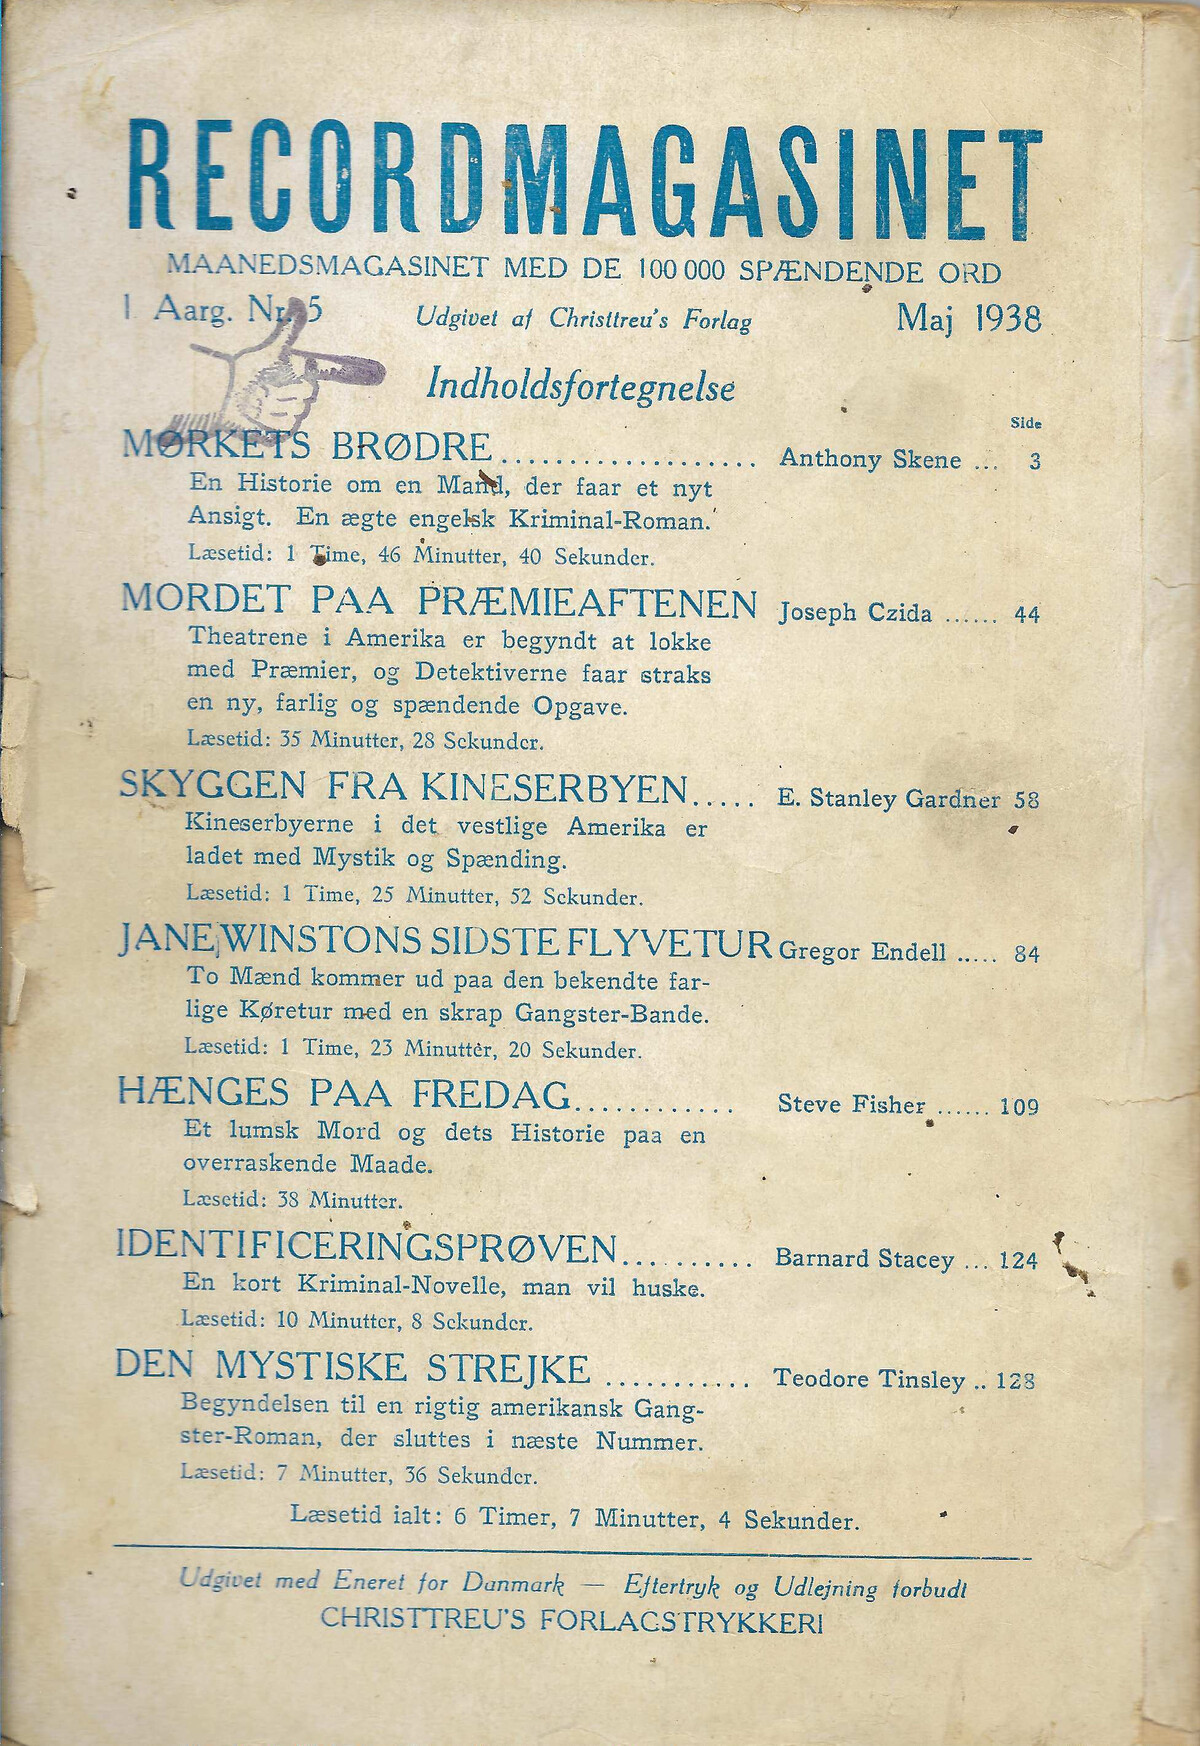 RECORDMAGASINET
MAANEDSMAGASINET MED DE 100 000 SPÆNDENDE ORD
1 Aarg. Nr. 5 Udgivet af Christtreu's Forlag Maj 1938
Indholdsfortegnelse
Side
MØRKETS BRØDRE ................... Anthony Skene ... 3
En Historie om en Mand, der faar et nyt
Ansigt. En ægte engelsk Kriminal-Roman.
Læsetid: 1 Time, 46 Minutter, 40 Sekunder.
MORDET PAA PRÆMIEAFTENEN Joseph Czida ...... 44
Theatrene i Amerika er begyndt at lokke
med Præmier, og Detektiverne faar straks
en ny, farlig og spændende Opgave.
Læsetid: 35 Minutter, 28 Sekunder.
SKYGGEN FRA KINESERBYEN ..... E. Stanley Gardner 58
Kineserbyerne i det vestlige Amerika er
ladet med Mystik og Spænding.
Læsetid: 1 Time, 25 Minutter, 52 Sekunder.
JANE WINSTONS SIDSTE FLYVETUR Gregor Endell ..... 84
To Mænd kommer ud paa den bekendte far-
lige Køretur med en skrap Gangster-Bande.
Læsetid: 1 Time, 23 Minutter, 20 Sekunder.
HÆNGES PAA FREDAG ............ Steve Fisher ...... 109
Et lumsk Mord og dets Historie paa en
overraskende Maade.
Læsetid: 38 Minutter.
IDENTIFICERINGSPRØVEN .......... Barnard Stacey ... 124
En kort Kriminal-Novelle, man vil huske.
Læsetid: 10 Minutter, 8 Sekunder.
DEN MYSTISKE STREJKE ........... Teodore Tinsley .. 128
Begyndelsen til en rigtig amerikansk Gang-
ster-Roman, der sluttes i næste Nummer.
Læsetid: 7 Minutter, 36 Sekunder.
Læsetid ialt: 6 Timer, 7 Minutter, 4 Sekunder.
Udgivet med Eneret for Danmark — Eftertryk og Udlejning forbudt
CHRISTTREU'S FORLAGSTRYKKERI